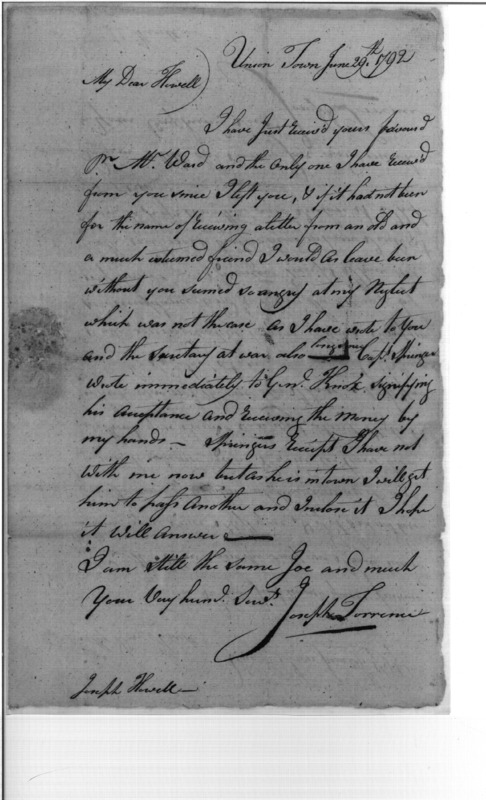 Union Town June 29.th 1792
My Dear Howell)
I have Just Receiv'd yours forward
pr. Mr. Ward and the Only one I have Receiv'd
from you since I left you, & if it had not been
for the name of Receiving a letter from an old and
a much esteemed friend I would as leave been
without you seemed so angry at my Neglect
which was not the case as I have wrote to You
long since
and the Secretary at war also Capt. Springer
wrote immediately to Genl. Knox signifying
his acceptance and Receiving the Money by
my hands — Springers Receipt I have not
with me now but as he is in town I will get
him to pass Another and Inclose it I hope
it will answer —
I am Still the same Joe and much
Your Very humb. Servt.
Joseph Torrence
Joseph Howell —